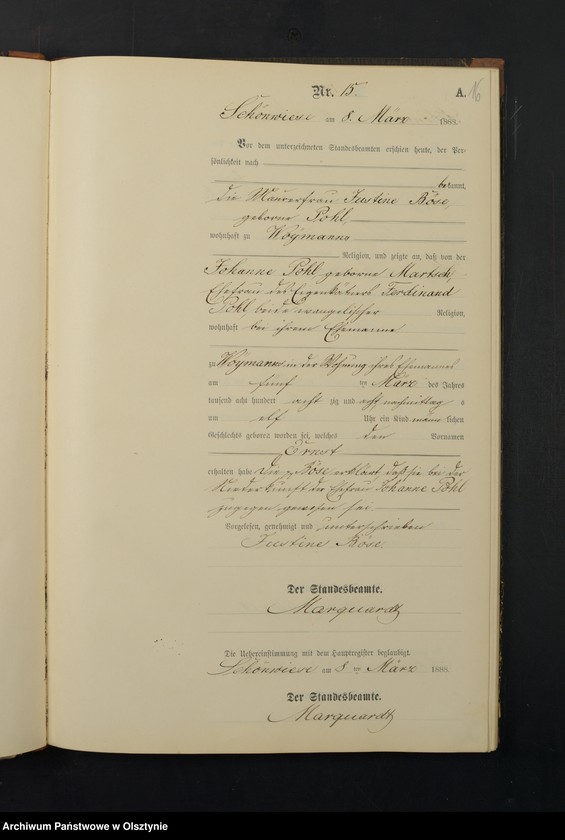 Nr. 15.
A.
Schönwiese am 8. März 1888.
Vor dem unterzeichneten Standesbeamten erschien heute, der Per-
sönlichkeit nach
bekannt,
die Maurerfrau Justine Böse,
geborne Pohl,
wohnhaft zu Woymanns
Religion, und zeigte an, daß von der
Johanne Pohl geborne Martsch,
Ehefrau des Eigenkäthners Ferdinand
Pohl, beide evangelischer Religion,
wohnhaft bei ihrem Ehemanne
zu Woymanns in der Wohnung ihres Ehemannes
am fünf ten März des Jahres
tausend acht hundert acht zig und acht nachmittag s
um elf Uhr ein Kind männ lichen
Geschlechts geboren worden sei, welches den Vornamen
Ernst
erhalten habe. Die p. Böse erklärt, daß sie bei der
Niederkunft der Ehefrau Johanne Pohl
zugegen gewesen sei.
Vorgelesen, genehmigt und unterschrieben
Justine Böse.
Der Standesbeamte.
Marquardt
Die Uebereinstimmung mit dem Hauptregister beglaubigt.
Schönwiese am 8 ten März 1888.
Der Standesbeamte.
Marquardt
Archiwum Państwowe w Olsztynie